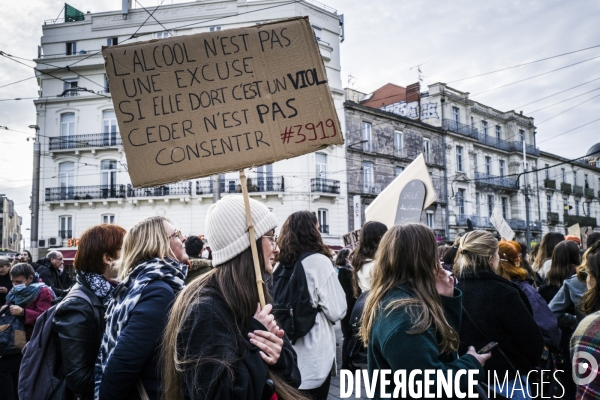 L'ALCOOL N'EST PAS
UNE EXCUSE
SI ELLE DORT C'EST UN VIOL
CEDER N'EST PAS
CONSENTIR #3919
DIVERGENCE IMAGES